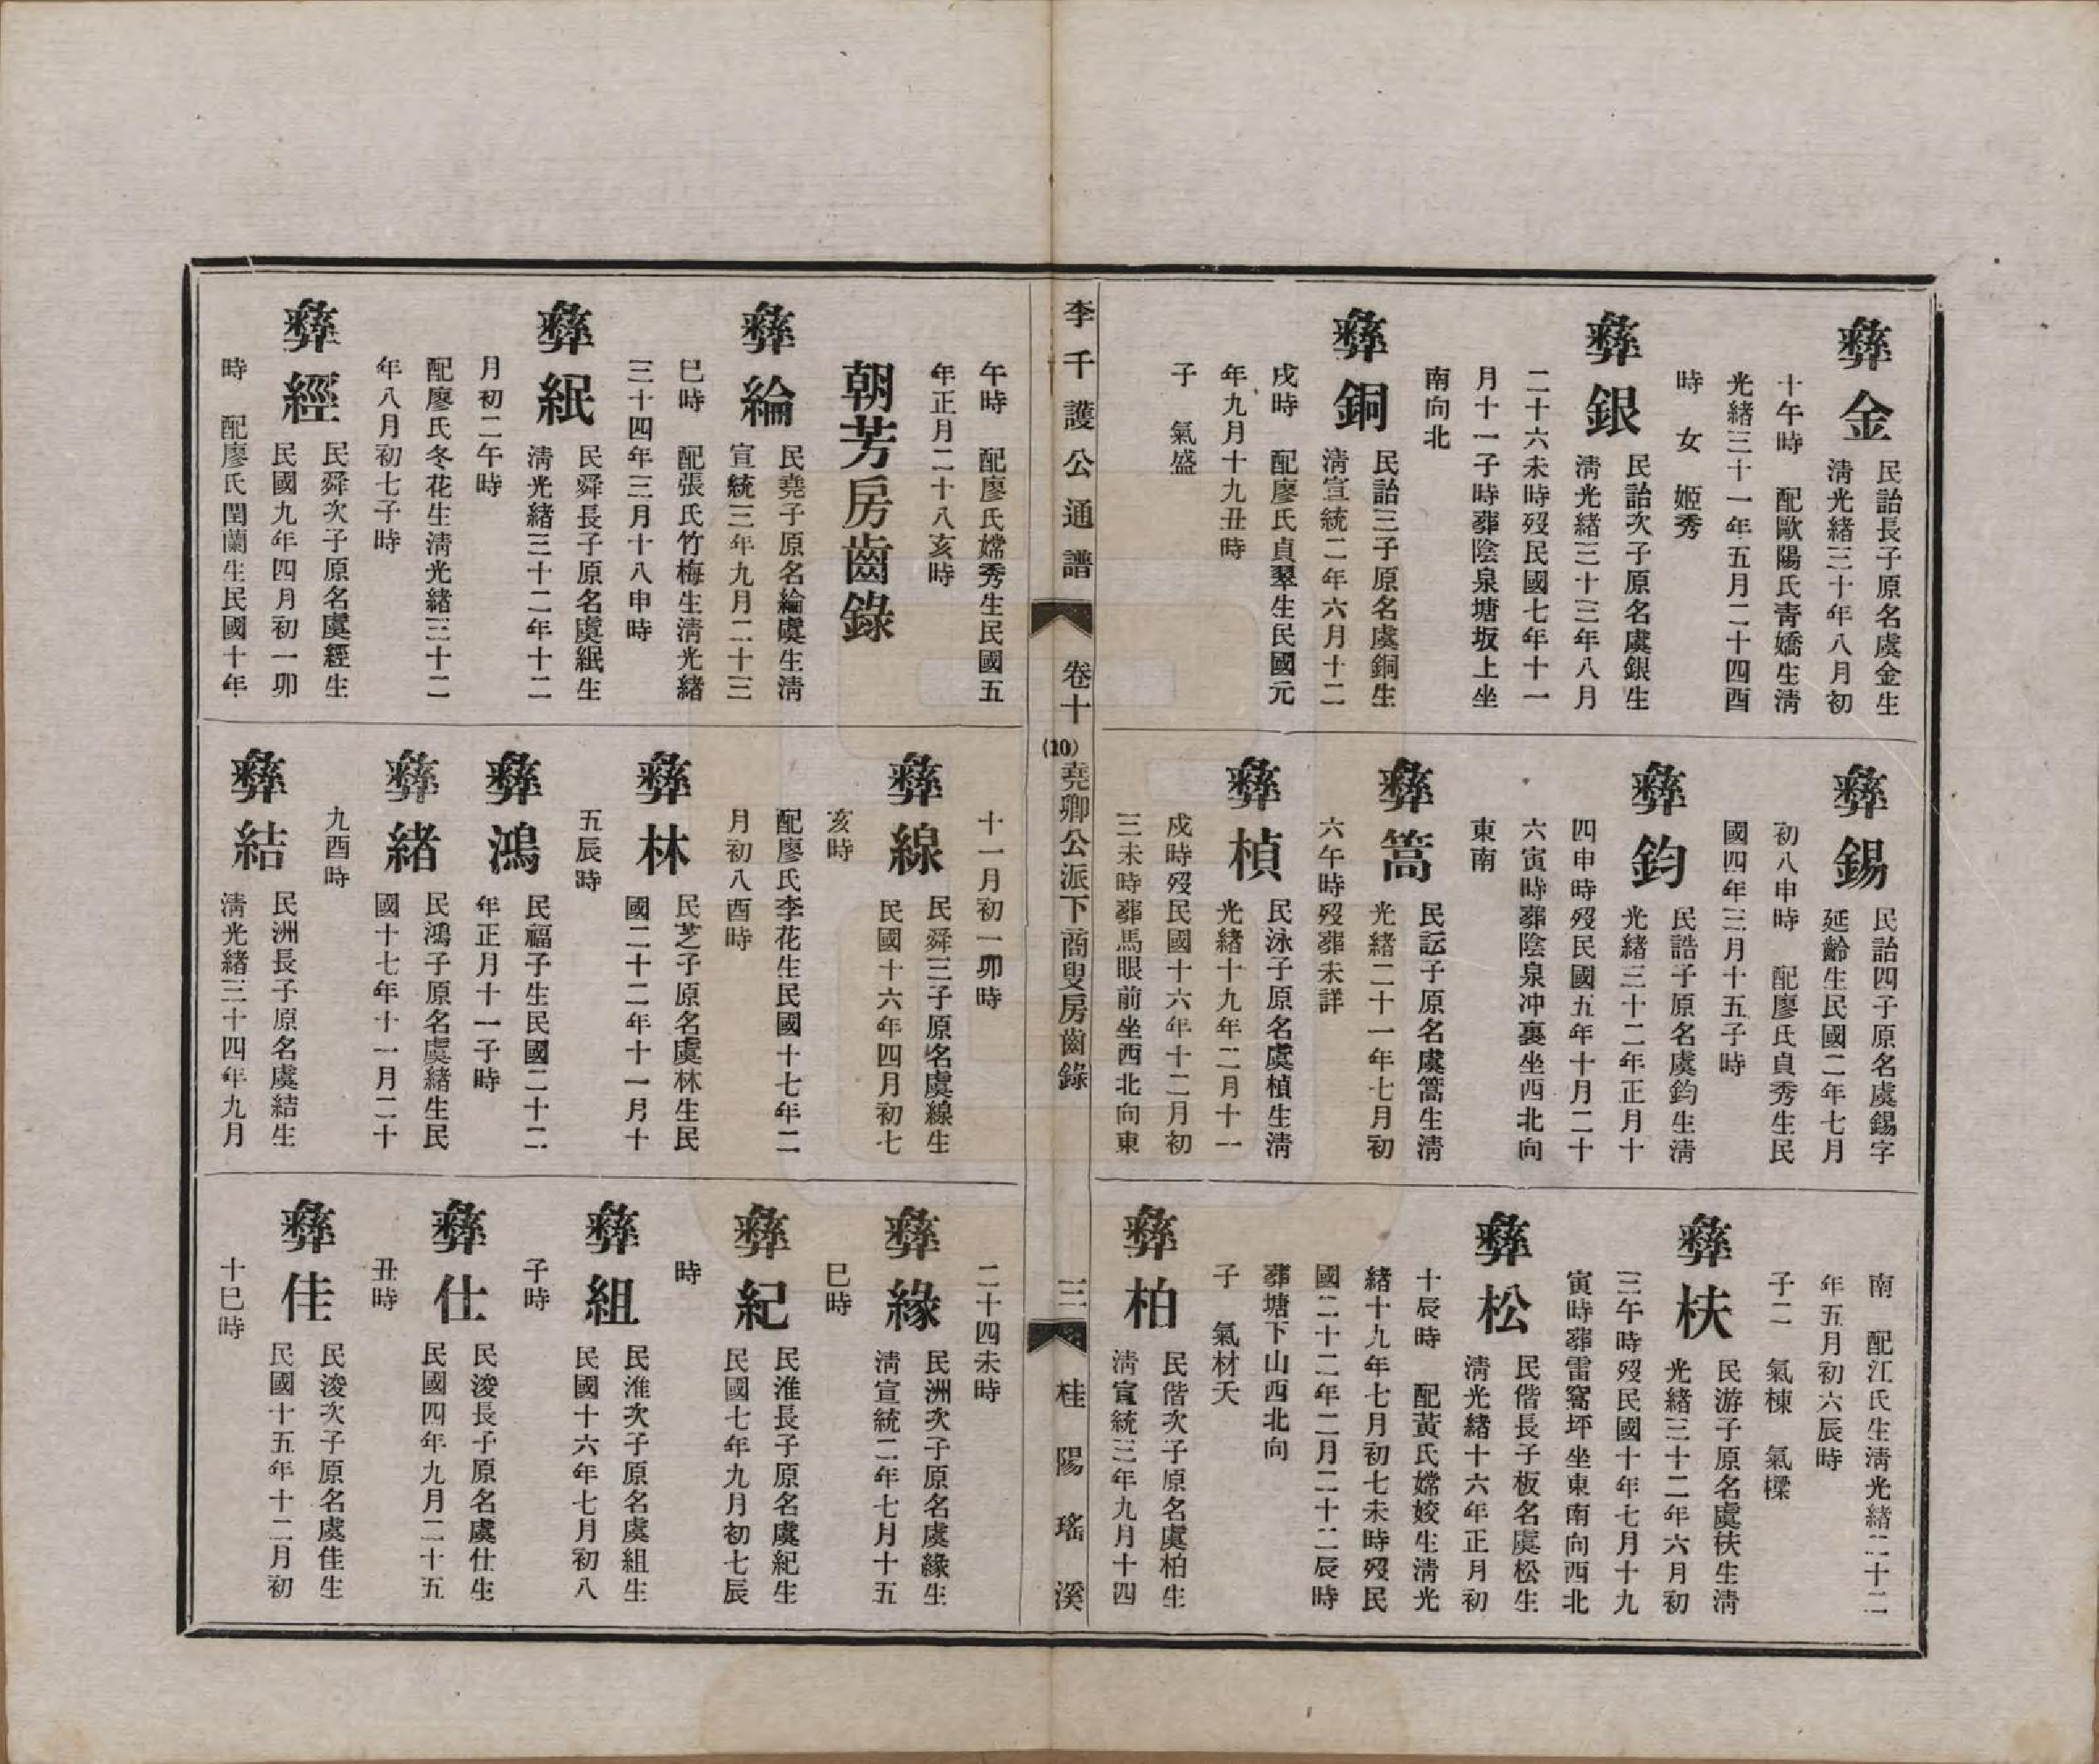 彝金
民詒長子原名虞金生
清光緒三十年八月初
十午時　配歐陽氏青嬌生清
光緒三十一年五月二十四酉
時　女　姬秀
彝銀
民詒次子原名虞銀生
清光緒三十三年八月
二十六未時歿民國七年十一
月十一子時葬陰泉塘坂上坐
南向北
彝銅
民詒三子原名虞銅生
清宣統二年六月十二
戌時　配廖氏貞翠生民國元
年九月十九丑時
子　氣盛
彝錫
民詒四子原名虞錫字
延齡生民國二年七月
初八申時　配廖氏貞秀生民
國四年三月十五子時
彝鈞
民誥子原名虞鈞生清
光緒三十二年正月十
四申時歿民國五年十月二十
六寅時葬陰泉冲裏坐西北向
東南
彝篙
民誋子原名虞篙生清
光緒二十一年七月初
六午時歿葬未詳
彝楨
民泳子原名虞楨生清
光緒十九年二月十一
戌時歿民國十六年十二月初
三未時葬馬眼前坐西北向東
南　配江氏生清光緒二十二
年五月初六辰時
子二　氣棟　氣樑
彝枎
民游子原名虞枎生清
光緒三十二年六月初
三午時歿民國十年七月十九
寅時葬雷窩坪坐東南向西北
彝松
民偕長子板名虞松生
清光緒十六年正月初
十辰時　配黃氏嫦姣生清光
緒十九年七月初七未時歿民
國二十二年二月二十二辰時
葬塘下山西北向
子　氣材夭
彝柏
民偕次子原名虞柏生
清宣統三年九月十四
李千護公通譜
卷十
(10)
堯卿公派下商叟房齒錄
三
桂陽瑤溪
午時　配廖氏嫦秀生民國五
年正月二十八亥時
朝芳房齒錄
彝綸
民堯子原名綸虞生清
宣統三年九月二十三
巳時　配張氏竹梅生清光緒
三十四年三月十八申時
彝紙
民舜長子原名虞紙生
清光緒三十二年十二
月初二午時
配廖氏冬花生清光緒三十二
年八月初七子時
彝經
民舜次子原名虞經生
民國九年四月初一卯
時　配廖氏閏蘭生民國十年
十一月初一卯時
彝線
民舜三子原名虞線生
民國十六年四月初七
亥時
配廖氏李花生民國十七年二
月初八酉時
彝林
民芝子原名虞林生民
國二十二年十一月十
五辰時
彝鴻
民福子生民國二十二
年正月十一子時
彝緒
民鴻子原名虞緒生民
國十七年十一月二十
九酉時
彝結
民洲長子原名虞結生
清光緒三十四年九月
二十四未時
彝緣
民洲次子原名虞緣生
清宣統二年七月十五
巳時
彝紀
民淮長子原名虞紀生
民國七年九月初七辰
時
彝組
民淮次子原名虞組生
民國十六年七月初八
子時
彝仕
民浚長子原名虞仕生
民國四年九月二十五
丑時
彝佳
民浚次子原名虞佳生
民國十五年十二月初
十巳時